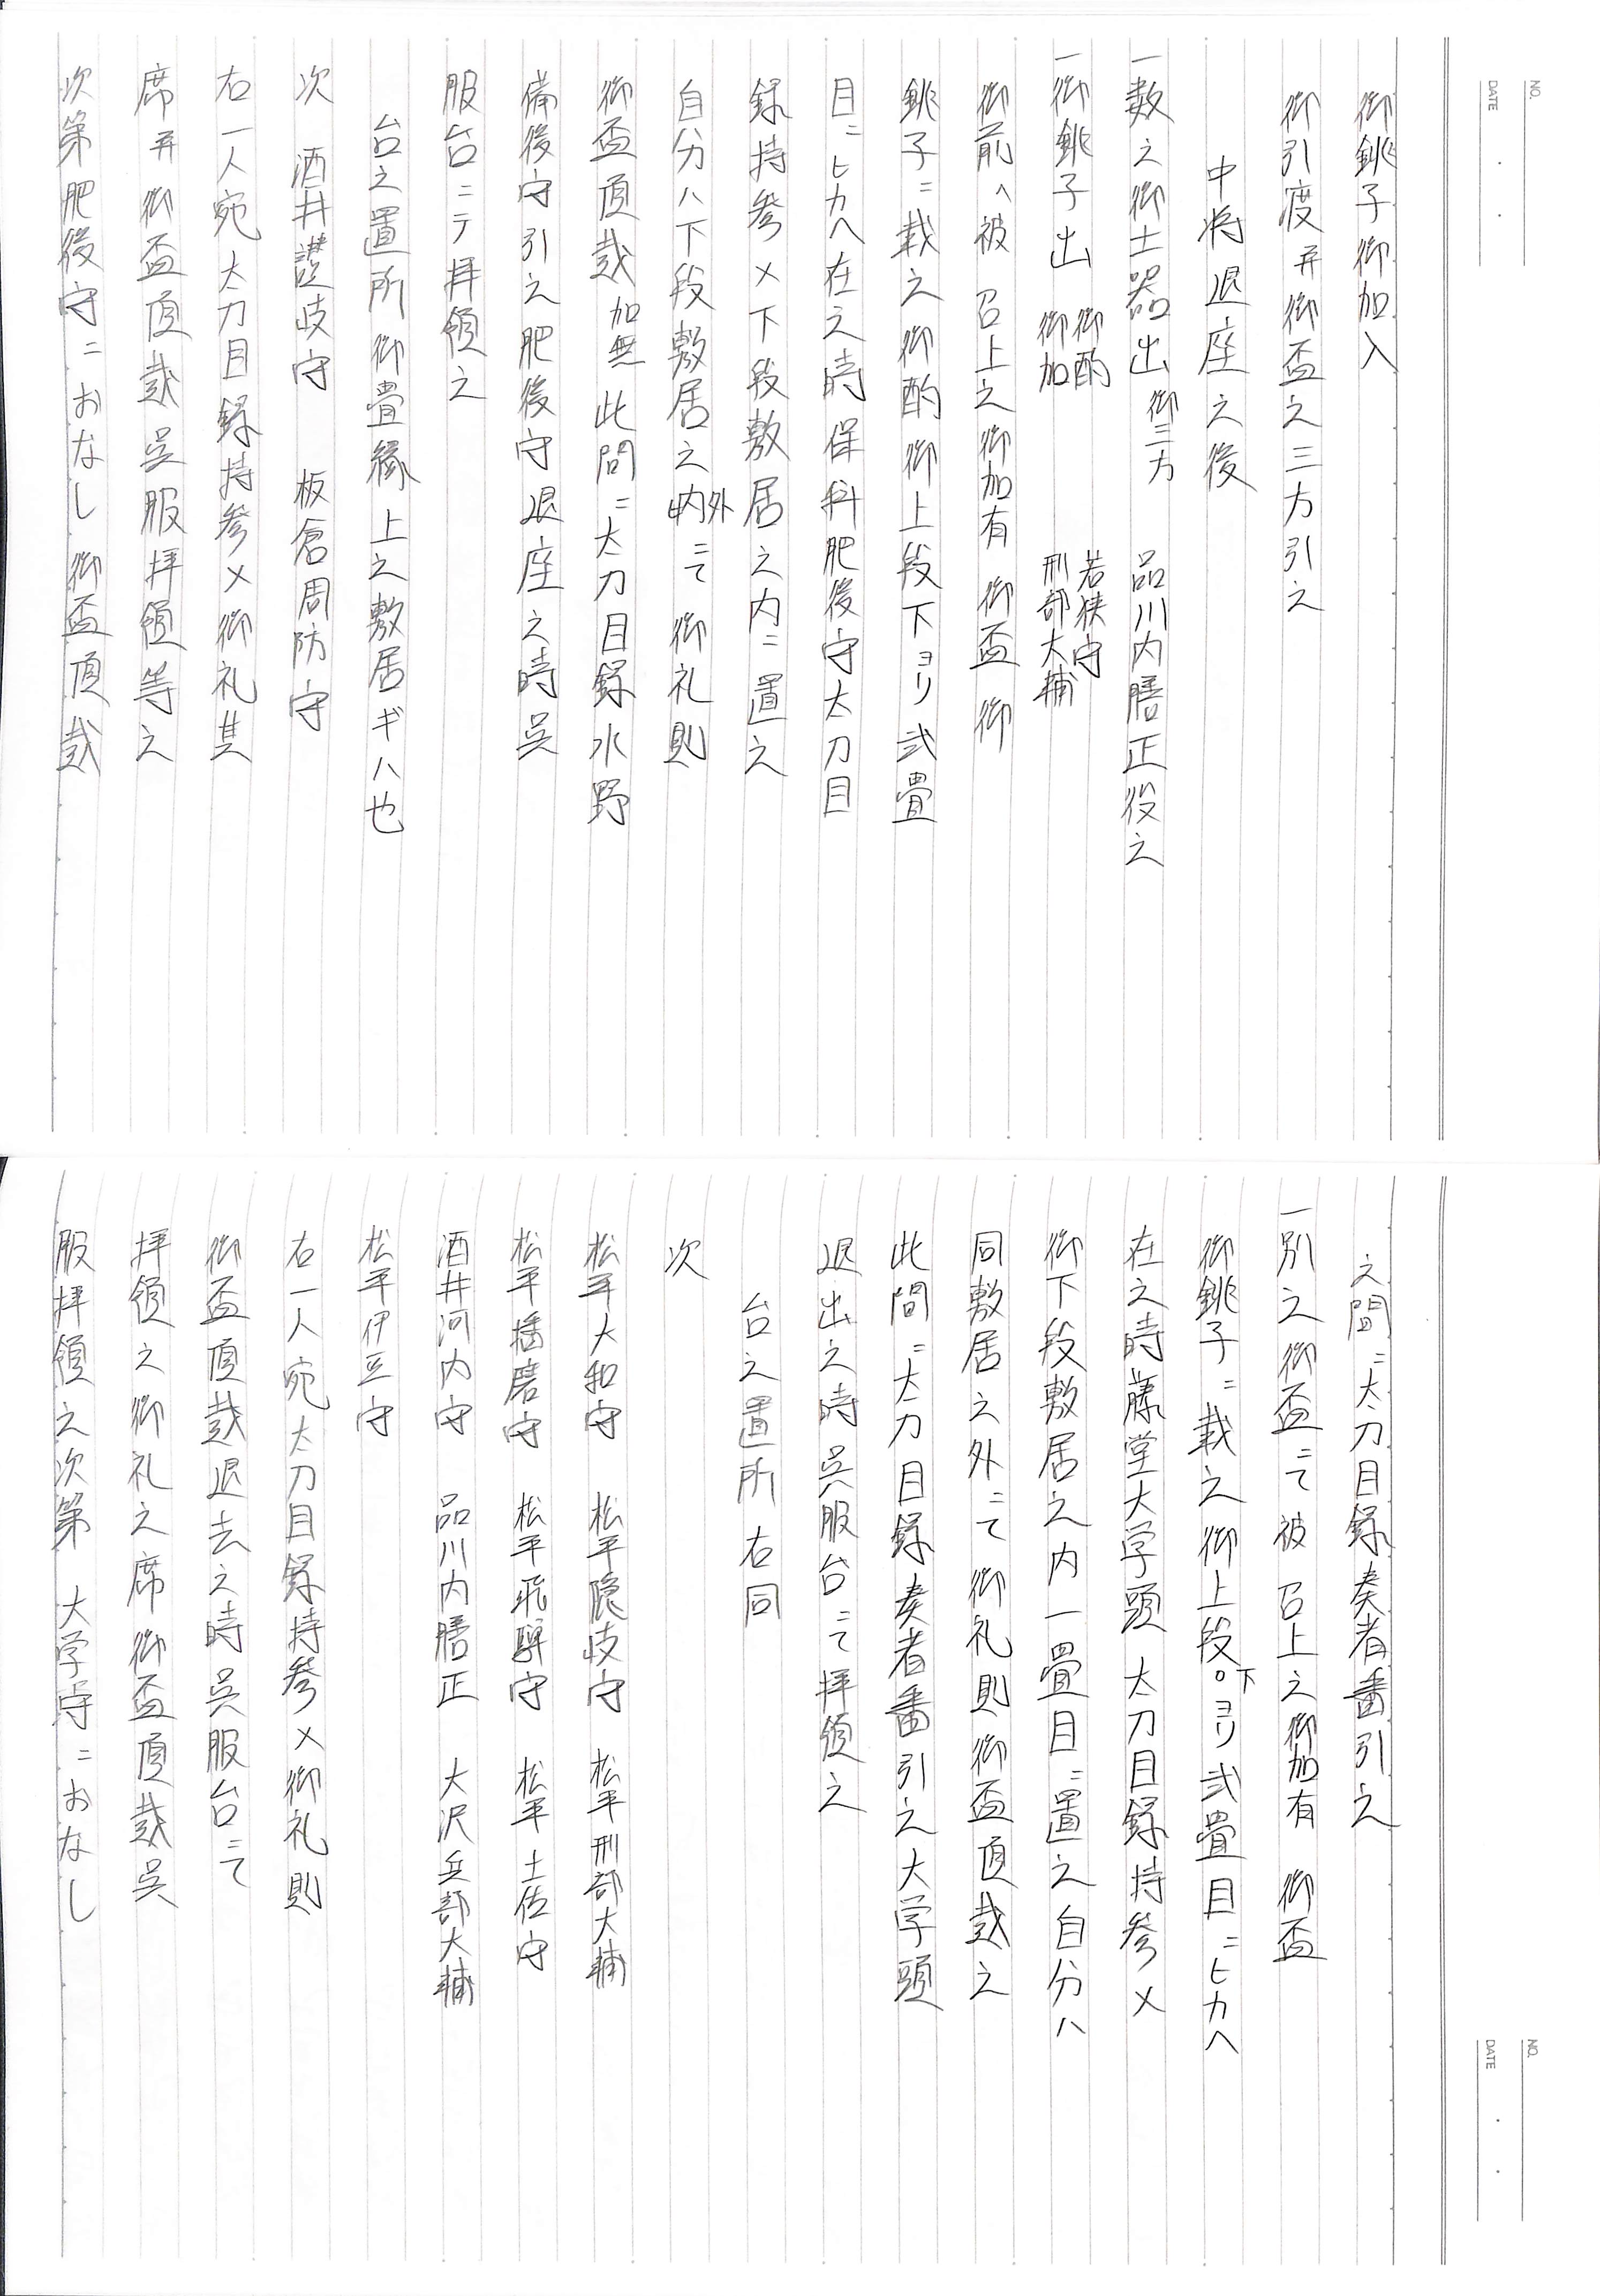 NO.
DATE
御銚子御加入
御引渡并御盃之三方引之
中将退座之後
一数之御土器出 御三方 品川内膳正役之
一御銚子出 御酌 若狭守
御加 刑部大輔
御前へ被 召上之御加有 御盃 御
銚子ニ載之御酌御上段下ヨリ弐畳
目ニヒカヘ在之時保科肥後守太刀目
録持参〆下段敷居之内ニ置之
自分ハ下段敷居之内外ニて 御礼則
御盃頂戴 加無 此間ニ太刀目録水野
備後守引之肥後守退座之時呉
服台ニテ拝領之
台之置所 御畳縁上之敷居ギハ也
次 酒井讃岐守 板倉周防守
右一人宛太刀目録持参〆御礼其
席并御盃頂戴呉服拝領等之
次第肥後守ニおなし 御盃頂戴
NO.
DATE
之間ニ太刀目録奏者番引之
一別之御盃ニて被 召上之御加有 御盃
御銚子ニ載之御上段。下ヨリ弐畳目ニヒカヘ
在之時藤堂大学頭 太刀目録持参〆
御下段敷居之内一畳目ニ置之自分ハ
同敷居之外ニて 御礼則御盃頂戴之
此間ニ太刀目録奏者番引之大学頭
退出之時呉服台ニて拝領之
台之置所 右同
次
松平大和守 松平隠岐守 松平刑部大輔
松平播磨守 松平飛騨守 松平土佐守
酒井河内守 品川内膳正 大沢兵部大輔
松平伊豆守
右一人宛太刀目録持参〆御礼則
御盃頂戴退去之時呉服台ニて
拝領之御礼之席御盃頂戴呉
服拝領之次第 大学守ニおなし